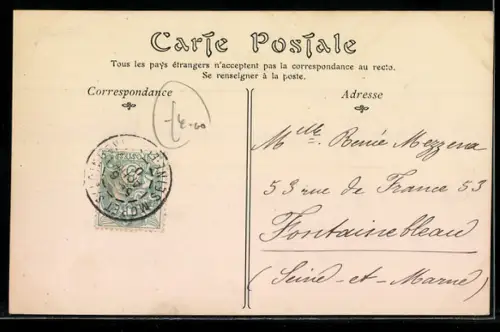 Carte Postale
Tous les pays étrangers n'acceptent pas la correspondance au recto.
Se renseigner à la poste.
Correspondance
Adresse
Mlle. Renée Mezzena
53 rue de France 53
Fontainebleau
(Seine-et-Marne)